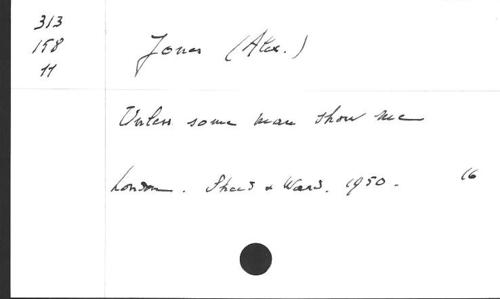 313
158
11
Jones (Alex.)
Unless some man show me
London. Sheed & Ward. 1950. 16